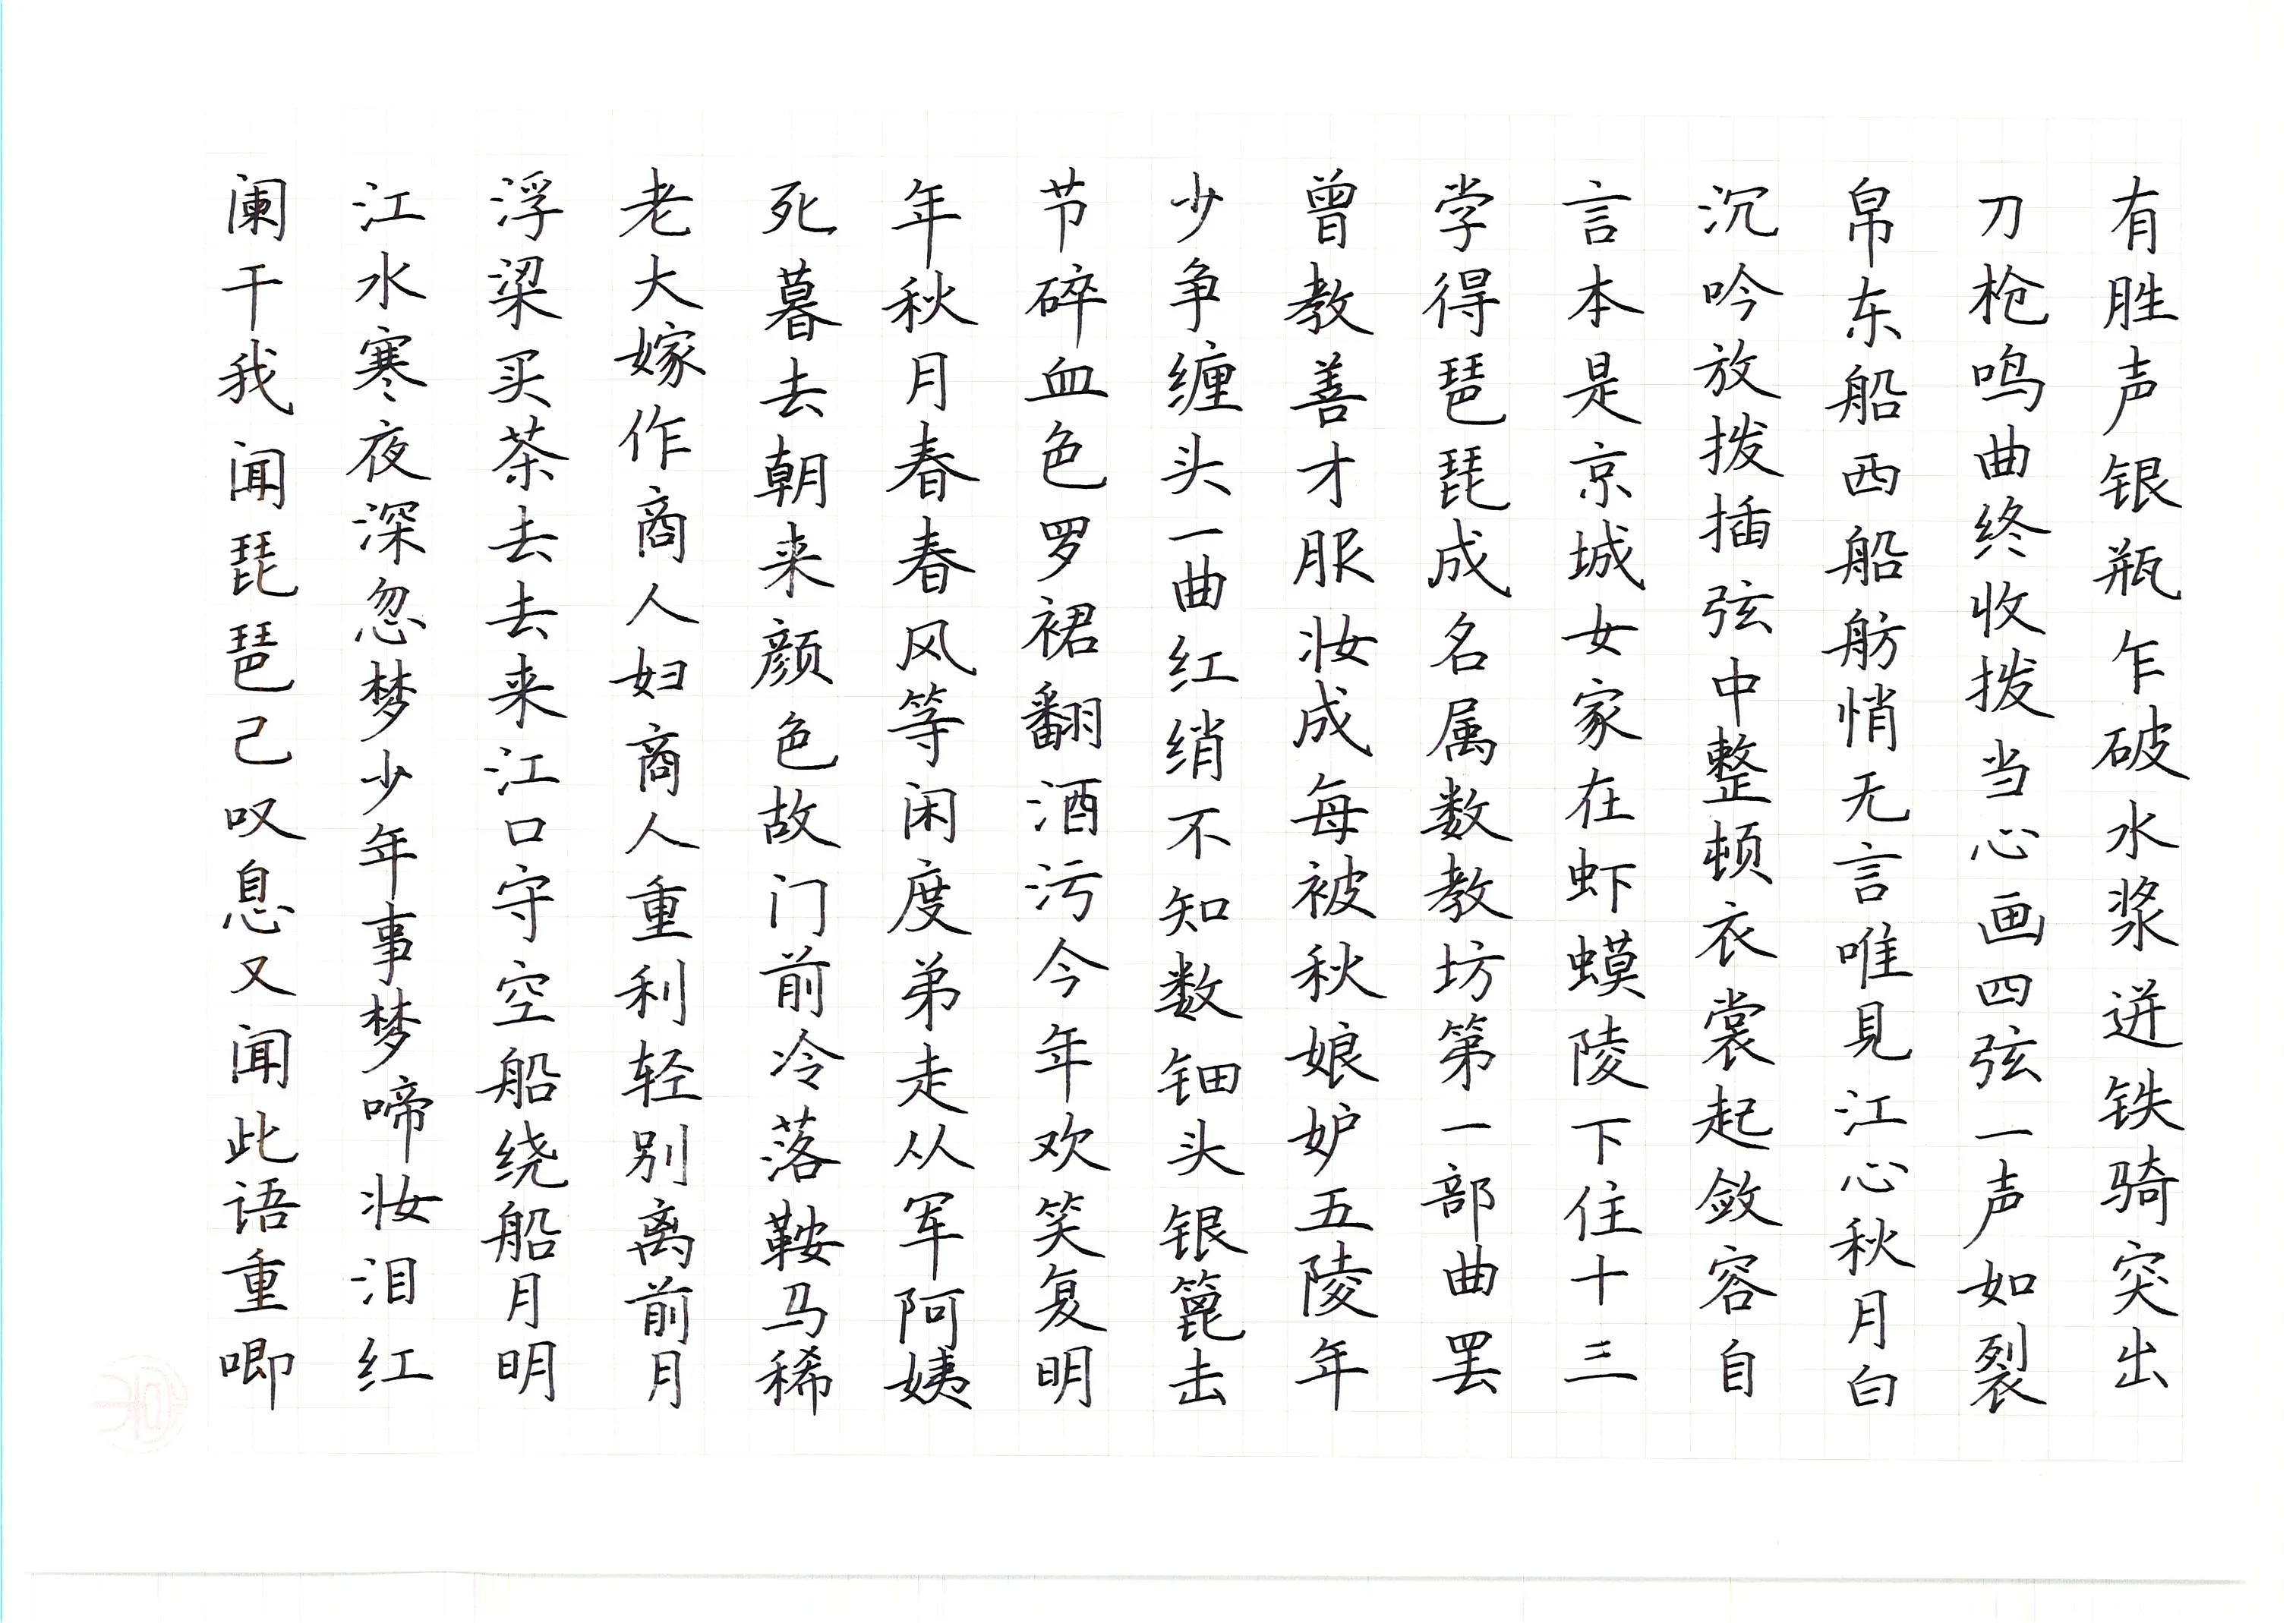 有胜声银瓶乍破水浆迸铁骑突出
刀枪鸣曲终收拨当心画四弦一声如裂
帛东船西船舫悄无言唯见江心秋月白
沉吟放拨插弦中整顿衣裳起敛容自
言本是京城女家在虾蟆陵下住十三
学得琶琵成名属数教坊第一部曲罢
曾教善才服妆成每被秋娘妒五陵年
少争缠头一曲红绡不知数钿头银篦击
节碎血色罗裙翻酒污今年欢笑复明
年秋月春春风等闲度弟走从军阿姨
死暮去朝来颜色故门前冷落鞍马稀
老大嫁作商人妇商人重利轻别离前月
浮梁买茶去去来江口守空船绕船月明
江水寒夜深忽梦少年事梦啼妆泪红
阑干我闻琵琶已叹息又闻此语重唧